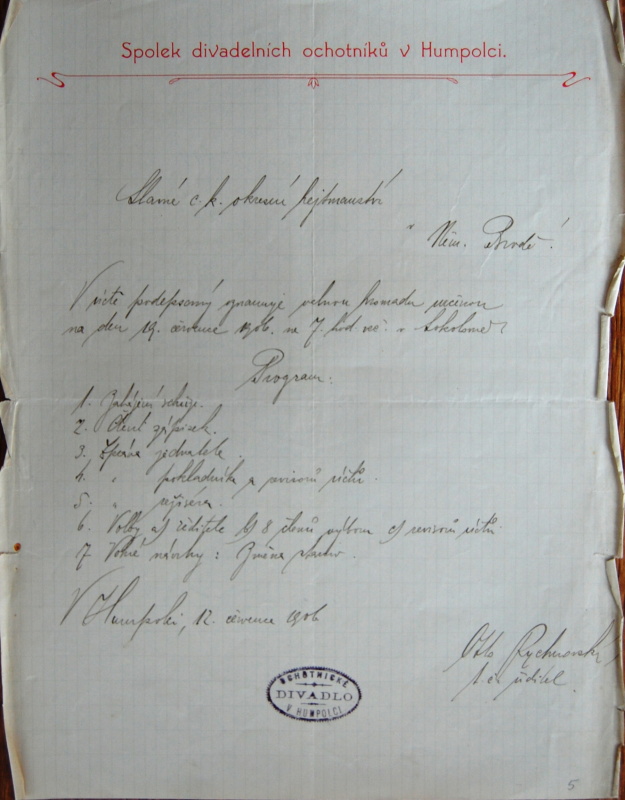 Spolek divadelních ochotníků v Humpolci.
Slavné c. k. okresní hejtmanství
v Něm. Brodě!
V úctě podepsaný oznamuje valnou hromadu určenou
na den 19. července 1906. na 7. hod več. v Sokolovně
Program:
1. Zahájení schůze.
2. Čtení zápisek.
3. Zpráva jednatele.
4. " pokladníka a revisorů účtů.
5. " režiséra.
6. Volby a) ředitele b) 8 členů výboru c) revisorů účtů.
7. Volné návrhy: Změna stanov.
V Humpolci, 12. července 1906
Otto Rychnovský
ředitel.
OCHOTNICKÉ
DIVADLO
V HUMPOLCI
5